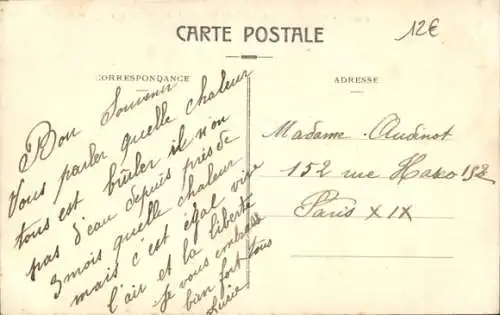 CARTE POSTALE
12€
CORRESPONDANCE
ADRESSE
Bon Souvenir
Vous parler quelle chaleur
tous est brûler il n'on
pas d'eau depuis près de
3 mois quelle chaleur
mais c'est égal vive
l'air et la liberté
je vous embrasse
bien fort tous
Lucie
Madame Audinot
152 rue
Paris XIX